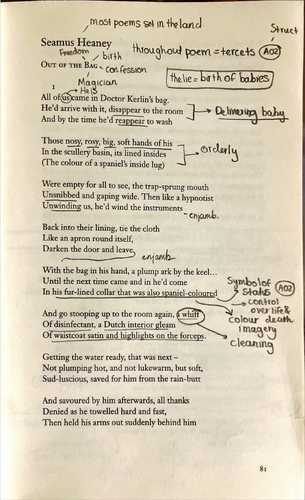 most poems set in the land.
Struct
Seamus Heaney
throughout poem = tercets (AO2)
Freedom
birth
OUT OF THE BAG - confession
the lie = birth of babies
Magician
1
He is
All of us came in Doctor Kerlin's bag.
He'd arrive with it, disappear to the room
Delivering baby
And by the time he'd reappear to wash
Those nosy, rosy, big, soft hands of his
In the scullery basin, its lined insides
orderly
(The colour of a spaniel's inside lug)
Were empty for all to see, the trap-sprung mouth
Unsnibbed and gaping wide. Then like a hypnotist
Unwinding us, he'd wind the instruments
- enjamb.
Back into their lining, tie the cloth
Like an apron round itself,
Darken the door and leave
enjamb.
With the bag in his hand, a plump ark by the keel...
Until the next time came and in he'd come
In his fur-lined collar that was also spaniel-coloured
Symbol of
status (AO2)
control
over life &
death
And go stooping up to the room again, a whiff
colour
imagery
Of disinfectant, a Dutch interior gleam
cleaning
Of waistcoat satin and highlights on the forceps.
Getting the water ready, that was next –
Not plumping hot, and not lukewarm, but soft,
Sud-luscious, saved for him from the rain-butt
And savoured by him afterwards, all thanks
Denied as he towelled hard and fast,
Then held his arms out suddenly behind him
81